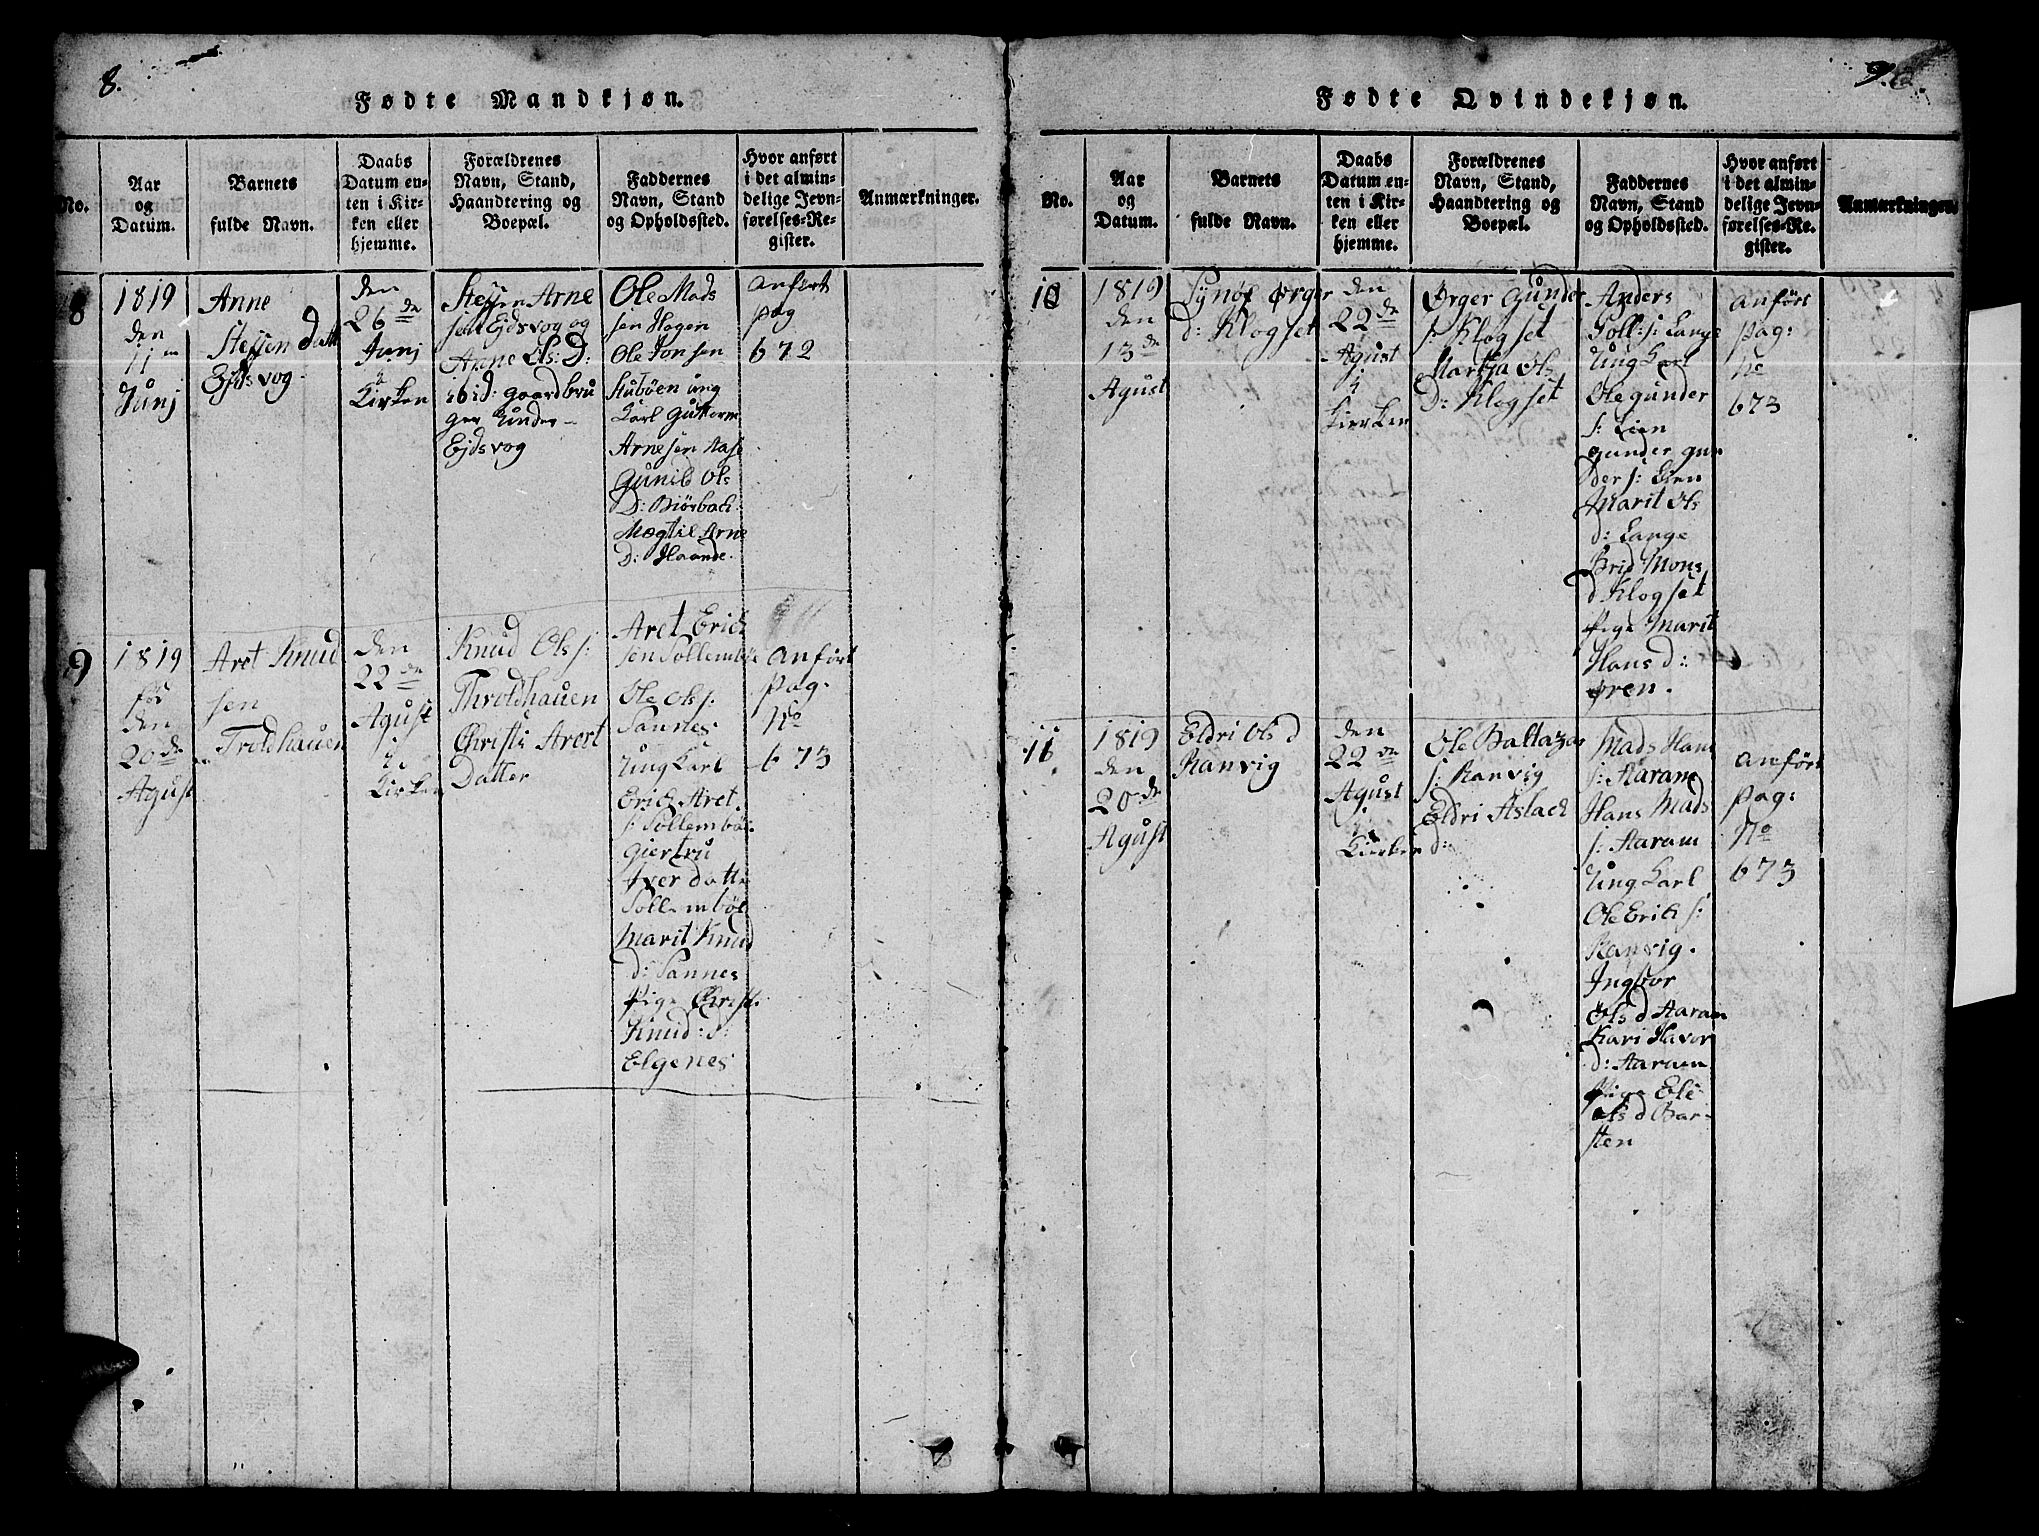 8.
Fødte Mandkjøn.
No.
Aar
og
Datum.
Barnets
fulde Navn.
Daabs
Datum en-
ten i Kir-
ken eller
hjemme.
Forældrenes
Navn, Stand,
Haandtering og
Boepæl.
Faddernes
Navn, Stand
og Opholdssted.
Hvor anført
i det almin-
delige Jevn-
førelses-Re-
gister.
Anmærkninger.
8
1819
den
11
Junj
Anne
Steffen Datt
Ejdsvog
den
26de
Junj
i
Kirken
Steffen Arne
sen Ejdsvog og
Anne Ols: D:
ibid: gaardbrů
ger
Ejdsvog
Ole Mads
sen Hogen
Ole Jonsen
Stůbøen ůng
Karl Gůttorm
Arnesen Aase
Gůnil Ols
D: Biörbach
Mægtil Arne
D: Haande.
anfört
pag
672
9
1819
för
den
20de
Agust
Aret Knud
sen
Troldhauen
den
22de
Agůst
i
Kirken
Knud Ols s:
Throldhauen
Christi Arert
Datter
Aret Erich
sen Sollembøe
Ole Ols s:
Sannes
Ůng Karl
Erich Aret
s: Sollembøe
Giertrů
Iver datt
Sollembøe
Marit Knud
d: Sannes
Pige Christ:
Knud: d:
Elgenes
anfört
Pag:
No
673
9.
Fødte Qvindekjøn.
No.
Aar
og
Datum.
Barnets
fulde Navn.
Daabs
Datum en-
ten i Kir-
ken eller
hjemme.
Forældrenes
Navn, Stand,
Haandtering og
Boepæl.
Faddernes
Navn, Stand
og Opholdssted.
Hvor anført
i det almin-
delige Jevn-
førelses-Re-
gister.
Anmærkninger.
10
1819
den
13de
Agust
Synøf Ørger
d: Klogset
den
22de
Agůst
i
Kierken
Ørger Gůnder
s: Klogset
Martha Ols
D: Klogset
Anders
Toll: s: Lange
Ůng Karl
Ole gůnder
s: Lien
gunder gun
der s: Lien
Marit Ols
d: Lange
Brid Mons
d Klogset
Pige Marit
Hans d:
Øren.
anfört
pag:
No
673
11
1819
den
20de
Agůst
Eldri Ols d
Ranvig
den
22de
Agůst
i
Kierken
Ole Baltazar
s: Ranvig
Eldri Aslach
d:
Mads Hans
s: Aaram
Hans Mads
s: Aaram
Ůng Karl
Ole Erik s:
Ranvig.
Ingbor
Ols d Aaram
Kari Havor
d: Aaram
Pige Ele
Ols d Bar-
sten
anført
pag:
No
673